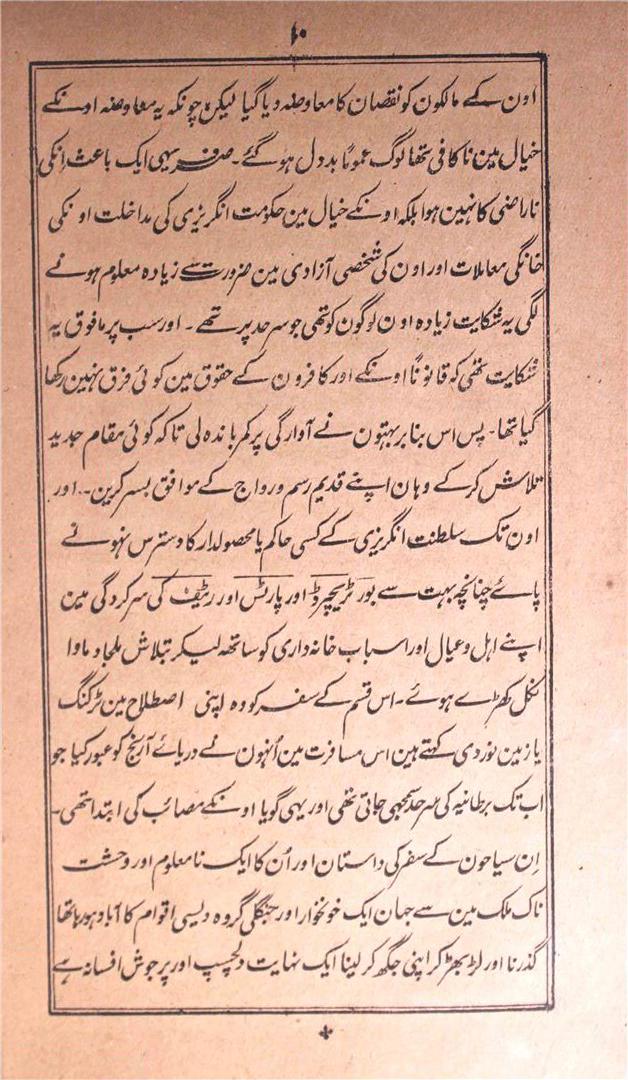 ۱۰
اون کے مالکون کو نقصان کا معاوضہ دیا گیا لیکن چونکہ یہ معاوضہ اونکے
خیال مین ناکافی تھا لوگ عموماً بد دل ہو گئے۔ صرف یہی ایک باعث انکی
ناراضی کا نہین ہوا بلکہ اونکے خیال مین حکومت انگریزی کی مداخلت اونکی
خانگی معاملات اور اون کی شخصی آزادی مین ضرورت سے زیادہ معلوم ہونے
لگی یہ شکایت زیادہ اون لوگون کو تھی جو سرحد پر تھے۔ اور سب پر مافوق یہ
شکایت تھی کہ قانوناً اونکے اور کافرون کے حقوق مین کوئی فرق نہین رکھا
گیا تھا۔ پس اس بنا پر بہتون نے آوارگی پر کمر باندہ لی تاکہ کوئی مقام جدید
تلاش کر کے وہان اپنے قدیم رسم و رواج کے موافق بسر کرین۔ اور
اون تک سلطنت انگریزی کے کسی حاکم یا محصولدار کا دسترس نہونے
پائے چنانچہ بہت سے بور ٹریچرڈ اور پارٹس اور رٹیف کی سرکردگی مین
اپنے اہل و عیال اور اسباب خانہ داری کو ساتھہ لیکر بتلاش ملجا و ماوا
نکل کھڑے ہوئے۔ اس قسم کے سفر کو وہ اپنی اصطلاح مین ٹرکنگ
یا زمین نوردی کہتے ہین اس مسافرت مین اُنہون نے دریائے آرنج کو عبور کیا جو
اب تک برطانیہ کی سرحد سمجھی جاتی تھی اور یہی گویا اونکے مصائب کی ابتدا تھی۔
اِن سیاحون کے سفر کی داستان اور اُن کا ایک نامعلوم اور وحشت
ناک ملک مین سے جہان ایک خونخوار اور جنگلی گروہ دیسی اقوام کا آباد ہو رہا تھا
گذرنا اور لڑ بھڑ کر اپنی جگھ کر لینا ایک نہایت دلچسپ اور پر جوش افسانہ ہے